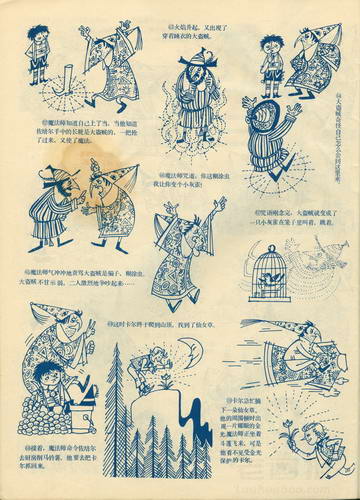 火焰升起，又出现了
穿着睡衣的大盗贼。
魔法师知道自己上了当，当他知道
佐培尔手中的长靴是大盗贼的，一把抢
了过来，又使了魔法。
大盗贼奇怪自己怎么会到这里来。
魔法师气冲冲地责骂大盗贼是骗子、糊涂虫。
大盗贼不甘示弱，二人激烈地争吵起来……
魔法师咒道，你这糊涂虫
我让你变个小灰雀！
咒语刚念完，大盗贼就变成了
一只小灰雀在笼子里叫着、跳着。
接着，魔法师命令佐培尔
去厨房削马铃薯，他要去把卡
尔抓回来。
这时卡尔终于爬到山顶，找到了仙女草。
卡尔急忙摘
下一朵仙女草，
他的周围顿时出
现一片耀眼的金
光，魔法师正坐着
斗篷飞来，可是
他看不见受金光
保护的卡尔。